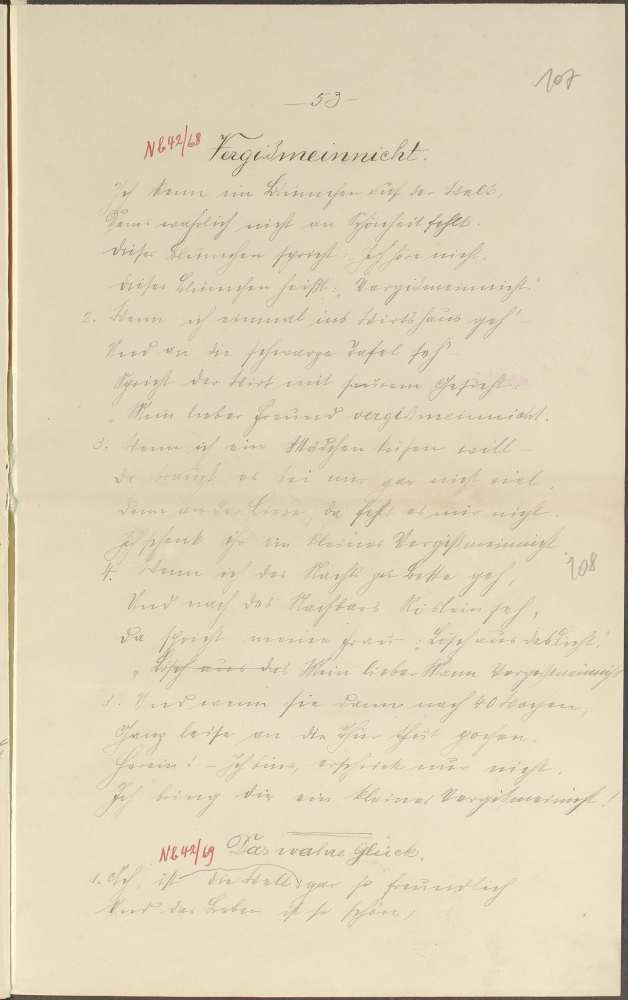 107
— 53 —
Nb 42/68 Vergißmeinnicht.
Ich kenn ein Blümchen auf der Welt,
Dems wahrlich nicht an Schönheit fehlt.
Dieses Blümchen spricht: Ich höre nicht.
Dieses Blümchen heißt: "Vergißmeinnicht."
2. Wenn ich einmal ins Wirtshaus geh'
Und an die schwarze Tafel seh'
Spricht der Wirt mit saurem Gesicht:
"Mein lieber Freund vergißmeinnicht.
3. Wenn ich ein Mädchen küssen will
Da braucht es bei mir gar nicht viel
Denn an der Liebe, da fehlt es mir nicht.
Ich schenk ihr ein kleines Vergißmeinnicht.
108
4. Wenn ich des Nachts zu Bette geh,
Und nach des Nachbars Röslein seh,
Da spricht meine Frau: "Lösch aus das Licht."
"Lösch aus das Mein lieber Mann Vergißmeinnicht
5. Und wenn sie dann nach 40 Wochen,
Ganz leise an die Thür thut pochen.
Herein! – Ich bins, erschrick nur nicht.
Ich bring dir ein kleines Vergißmeinnicht!
Nb 42/69 Das wahre Glück.
1. Ach, ist die Welt gar so freundlich
Und das Leben ist so schön,